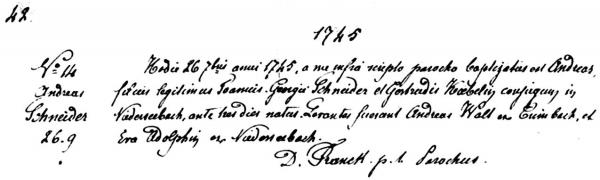 42.
1745
No 14
Andreas
Schneider
26.9
Hodie 26 7bris anni 1745, a me infra scripto parocho baptizatus est Andreas,
filius legitimus Joannis Georgii Schneider et Gertrudis Kœbelin conjugum in
Niederserbach, ante tres dies natus. Levantes fuerunt Andreas Walt ex et
Eva Adolphin ex Niederserbach.
D. Franck p. t. Parochus.